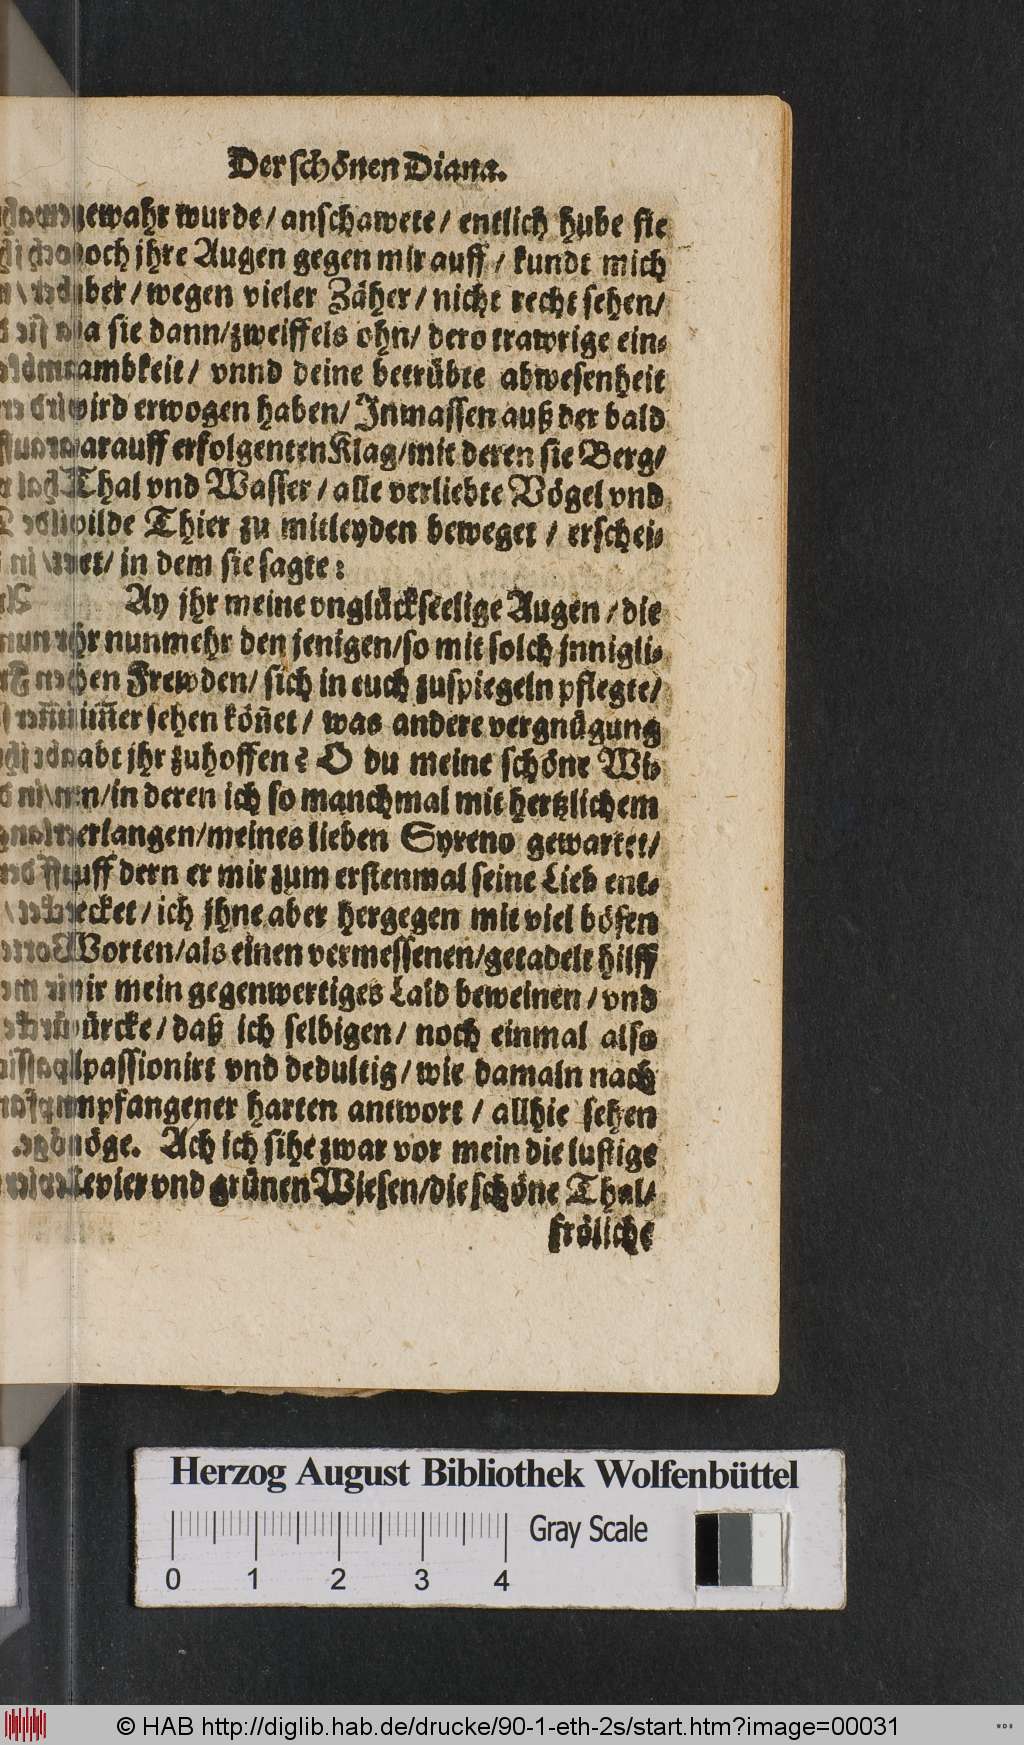 Der schönen Diana.
gewahr wurde / anschawete / entlich hube sie
doch jhre Augen gegen mir auff / kundt mich
aber / wegen vieler Zäher / nicht recht sehen /
da sie dann / zweiffels ohn / dero trawrige ein-
sambkeit / vnnd deine betrübte abwesenheit
wird erwogen haben / Jnmassen auß der bald
darauff erfolgenten Klag / mit deren sie Berg /
Thal vnd Wasser / alle verliebte Vögel vnd
wilde Thier zu mitleyden beweget / erschei-
net / in dem sie sagte:
Ay jhr meine vnglückseelige Augen / die
jhr nunmehr den jenigen / so mit solch jnnigli-
chen Frewden / sich in euch zuspiegeln pflegte /
nimmer sehen kön̄et / was andere vergnügung
habt jhr zuhoffen? O du meine schöne Wi-
sen / in deren ich so manchmal mit hertzlichem
verlangen / meines lieben Syreno gewartet /
auff dern er mir zum erstenmal seine Lieb ent-
decket / ich jhne aber hergegen mit viel bösen
Worten / als einen vermessenen / getadelt hilff
mir mein gegenwertiges Laid beweinen / vnd
würcke / daß ich selbigen / noch einmal also
passionirt vnd dedultig / wie damaln nach
empfangener harten antwort / allhie sehen
möge. Ach ich sihe zwar vor mein die lustige
Revier vnd grünen Wiesen / die schöne Thal /
fröliche
Herzog August Bibliothek Wolfenbüttel
Gray Scale
0 1 2 3 4
© HAB http://diglib.hab.de/drucke/90-1-eth-2s/start.htm?image=00031